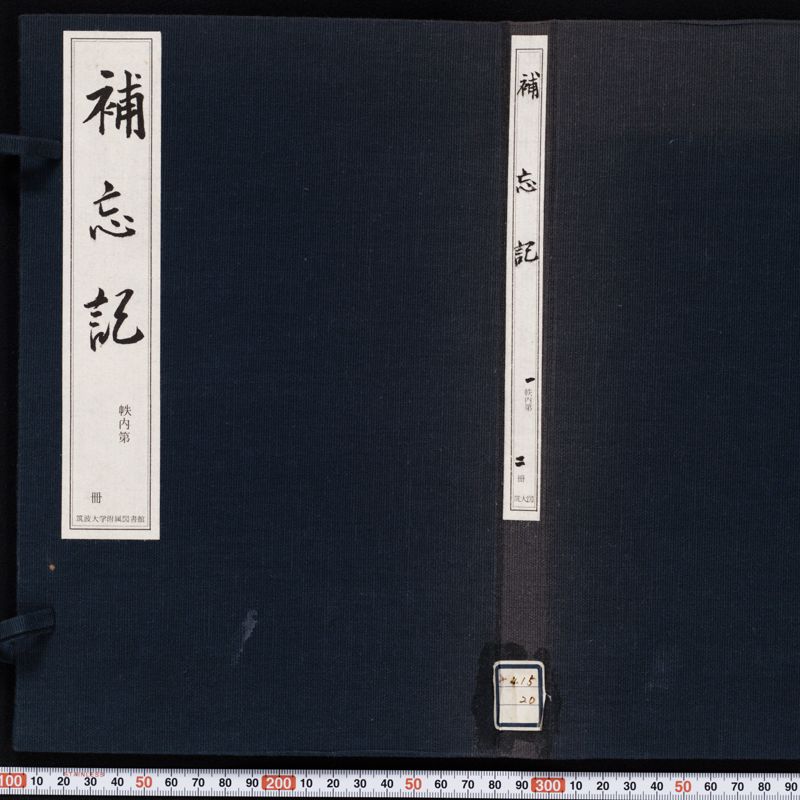 補忘記
帙内第
冊
筑波大学附属図書館
補忘記
一
帙内第
二
冊
筑大図
415
20
STAINLESS
100 10 20 30 40 50 60 70 80 90 200 10 20 30 40 50 60 70 80 90 300 10 20 30 40 50 60 70 80 90